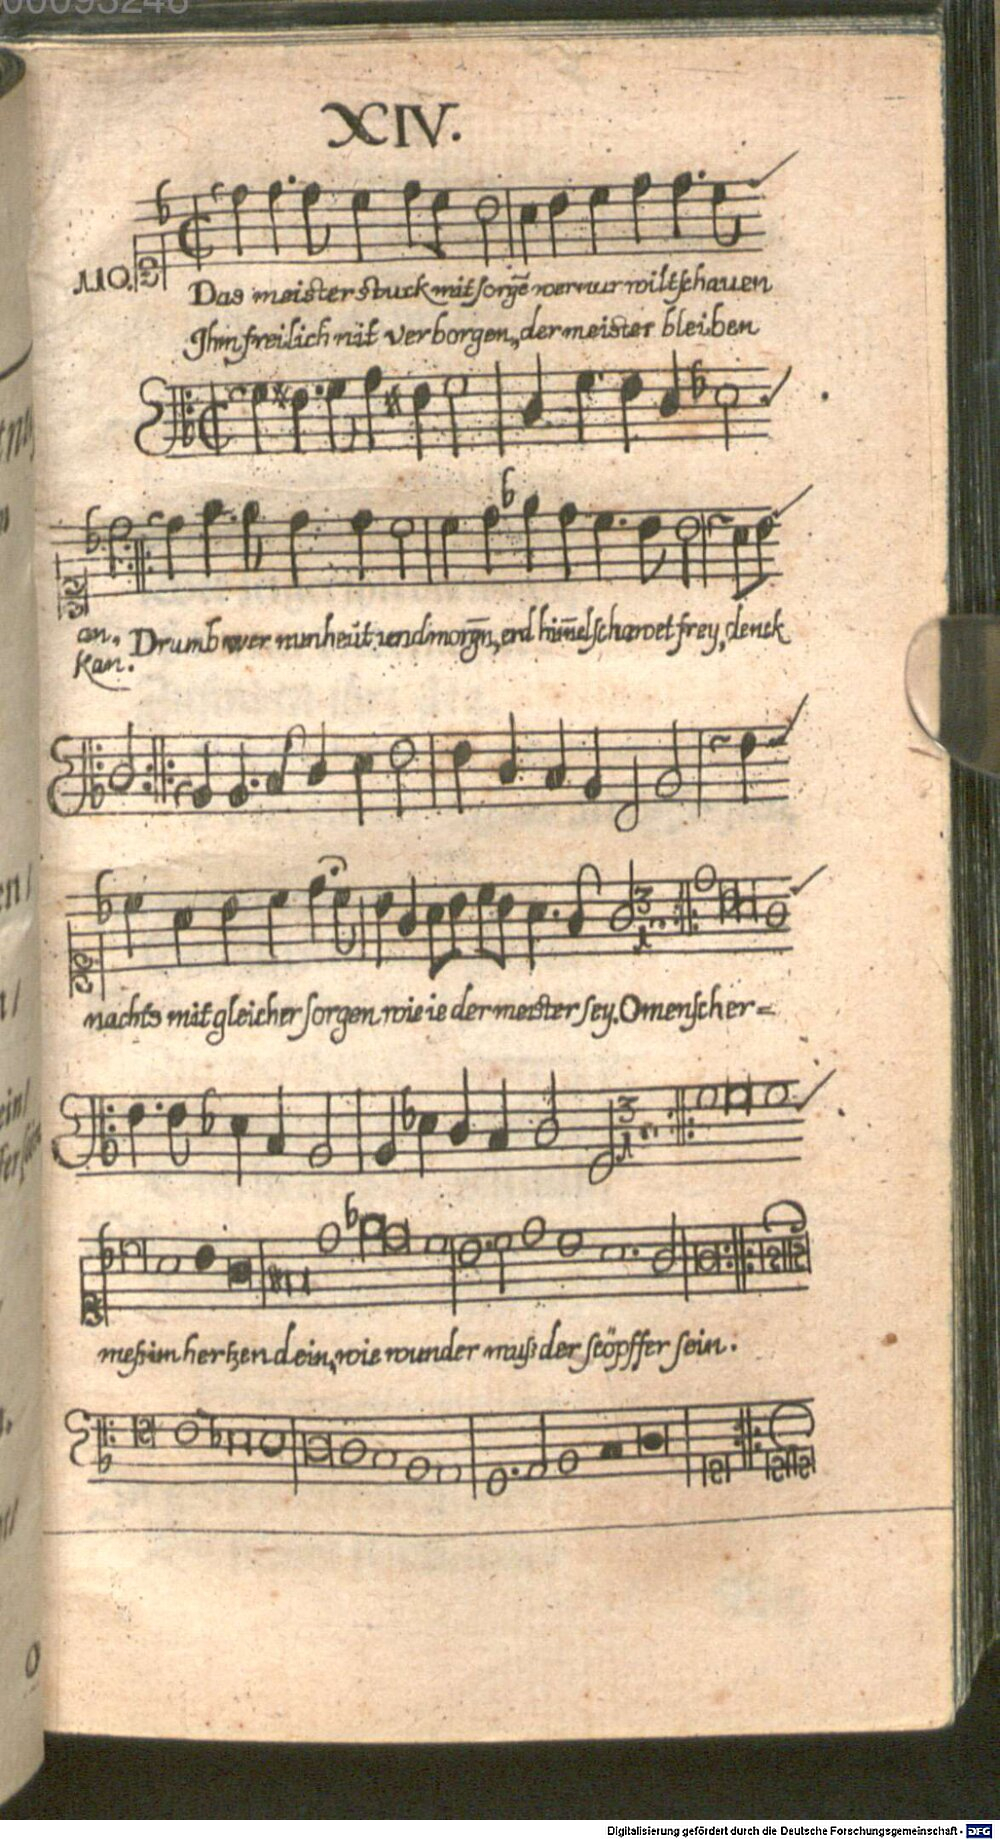 00093246
XIV.
Das meister stuck mit sorgē wer nur wilt schauen
Ihm freilich nit verborgen, der meister bleiben
an. Drumb wer nun heut und morgn, erd him̄el schawet frey, denck
kan.
nachts mit gleicher sorgen wie ie der meister sey. O mensch er=
meß im hertzen dein, wie wunder muß der scöpffer sein.
Digitalisierung gefördert durch die Deutsche Forschungsgemeinschaft - DFG